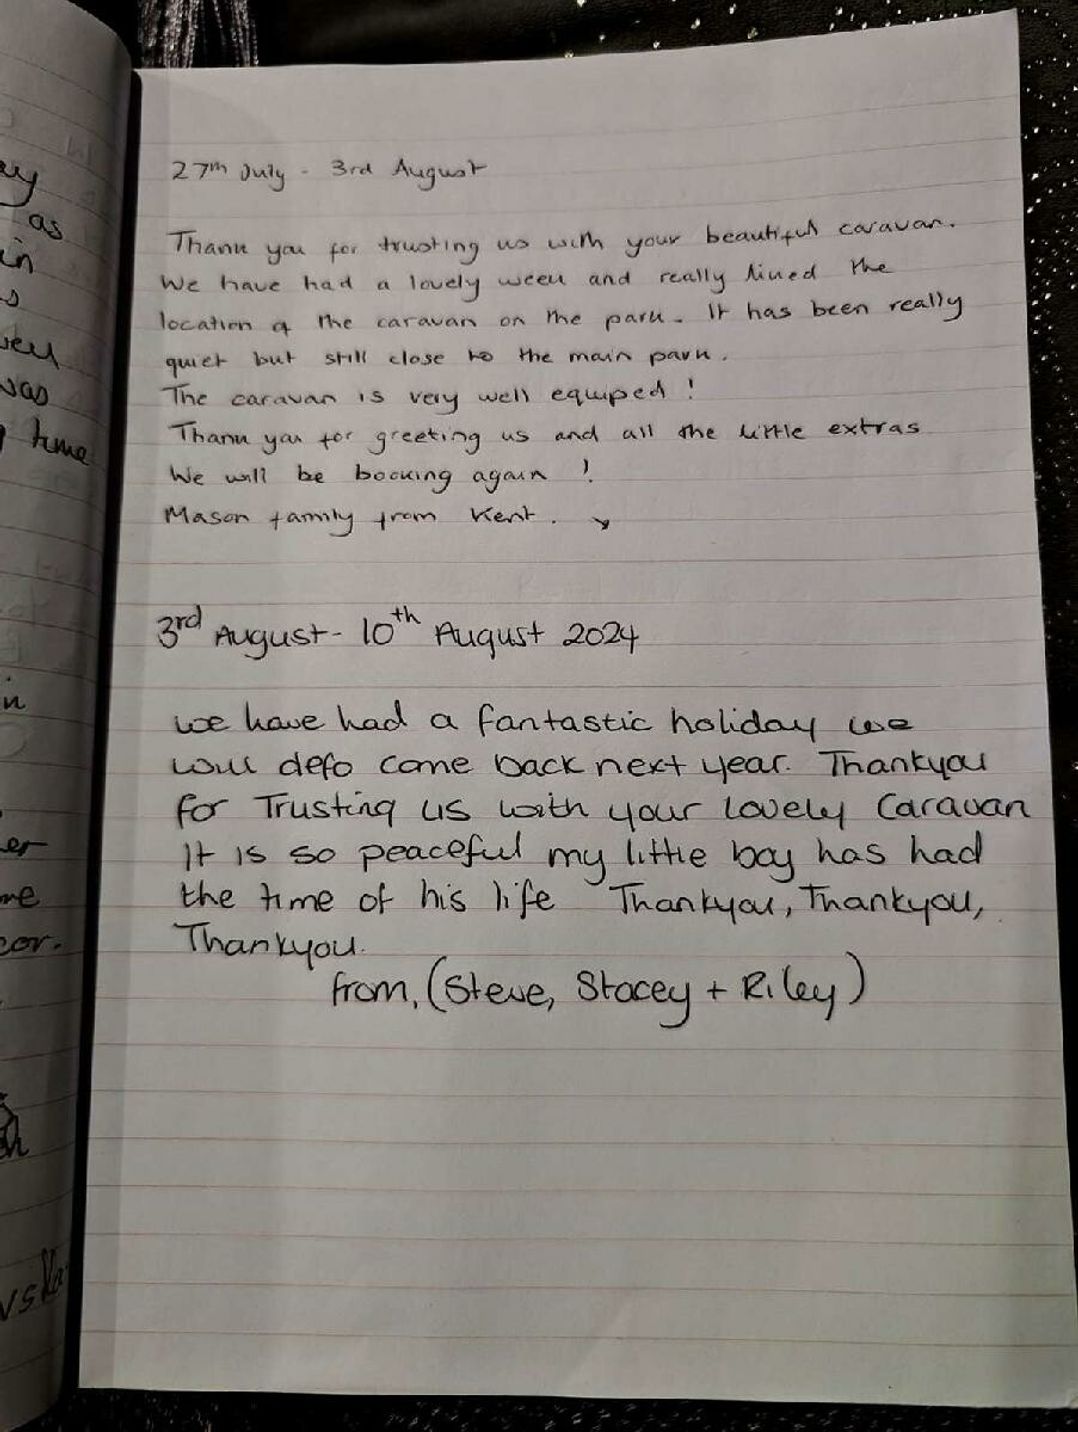 ay
as
in
was
time
n
er
me
cor.
27th July - 3rd August
Thank you for trusting us with your beautiful caravan.
We have had a lovely week and really liked the
location of the caravan on the park. It has been really
quiet but still close to the main park.
The caravan is very well equiped!
Thank you for greeting us and all the little extras
We will be booking again!
Mason family from Kent.
3rd August - 10th August 2024
we have had a fantastic holiday we
will defo come back next year. Thankyou
for Trusting us with your lovely Caravan
It is so peaceful my little boy has had
the time of his life Thankyou, Thankyou,
Thankyou.
from, (Steve, Stacey + Riley)